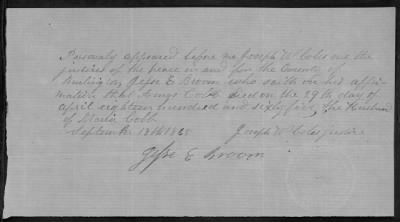 Personaly appeared before me Joseph W Coles one the
justices of the peace in and for the County of
Burlington, Jesse E Broom who saith on his affir
mation that Amos Cobb died on the 29th day of
april eighteen hundred and sixty five, the Husband
of Maria Cobb
September 13th 1865 Joseph W Coles justice
Jesse E Broom